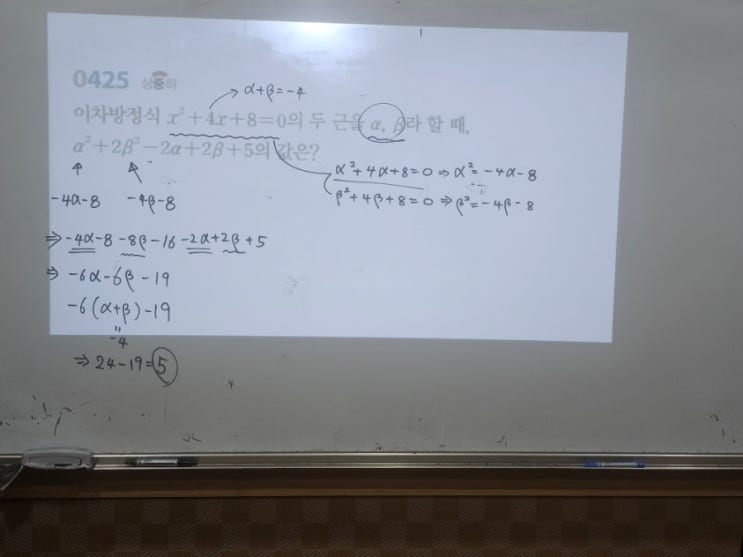 0425 상중하
α+β=-4
이차방정식 x²+4x+8=0의 두 근을 α, β라 할 때,
α²+2β²-2α+2β+5의 값은?
α²+4α+8=0 ⇒ α²=-4α-8
β²+4β+8=0 ⇒ β²=-4β-8
-4α-8 -4β-8
⇒ -4α-8-8β-16-2α+2β+5
⇒ -6α-6β-19
-6(α+β)-19
"
-4
⇒ 24-19=5